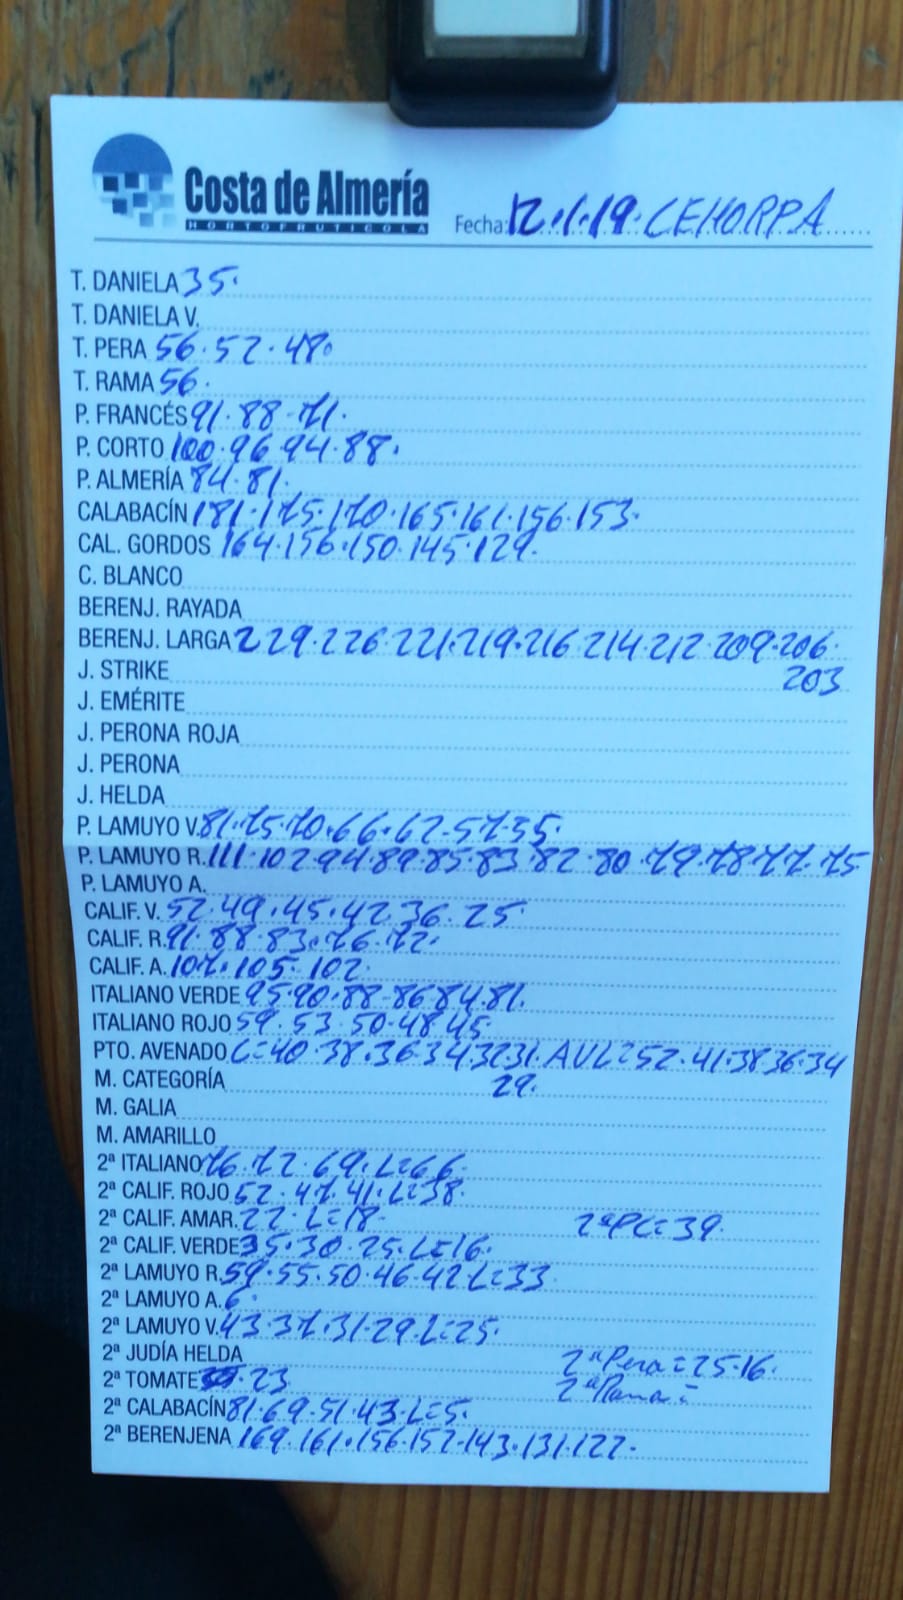 Costa de Almería
HORTOFRUTICOLA
Fecha: 12.1.19. CEHORPA
T. DANIELA 35.
T. DANIELA V.
T. PERA 56.52.48.
T. RAMA 56.
P. FRANCÉS 91.88.71.
P. CORTO 100.96.94.88.
P. ALMERÍA 84.81.
CALABACÍN 181.175.170.165.161.156.153.
CAL. GORDOS 164.156.150.145.129.
C. BLANCO
BERENJ. RAYADA
BERENJ. LARGA 229.226.221.219.216.214.212.209.206.
203
J. STRIKE
J. EMÉRITE
J. PERONA ROJA
J. PERONA
J. HELDA
P. LAMUYO V. 81.75.70.66.62.57.35.
P. LAMUYO R. 111.102.94.89.85.83.82.80.79.78.77.75
P. LAMUYO A.
CALIF. V. 52.49.45.42.36.25.
CALIF. R. 91.88.83.76.72.
CALIF. A. 107.105.102.
ITALIANO VERDE 95.90.88.86.84.81.
ITALIANO ROJO 59.53.50.48.45
PTO. AVENADO L=40.38.36.34.32.31. AVL=52.41.38.36.34
29.
M. CATEGORÍA
M. GALIA
M. AMARILLO
2ª ITALIANO 76.72.69.L=66.
2ª CALIF. ROJO 52.47.41.L=38.
2ª CALIF. AMAR. 22.L=18. 2ªPC=39.
2ª CALIF. VERDE 35.30.25.L=16.
2ª LAMUYO R. 59.55.50.46.42 L=33
2ª LAMUYO A. 6.
2ª LAMUYO V. 43.37.31.29.L=25.
2ª JUDÍA HELDA 2ªPera=25.16.
2ª TOMATE 23 2ªRama=
2ª CALABACÍN 81.69.51.43.L=5.
2ª BERENJENA 169.161.156.152.143.131.122.